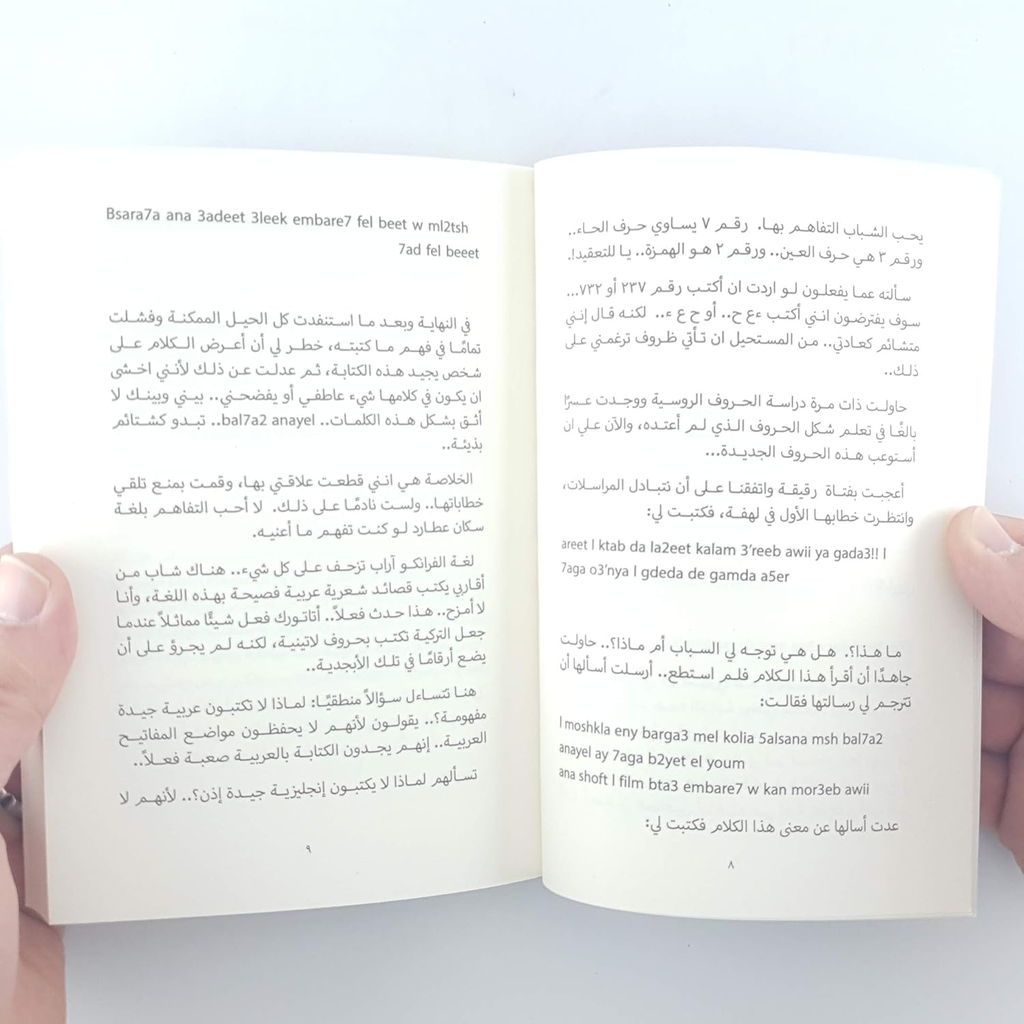 يحب الشباب التفاهم بها. رقم ٧ يساوي حرف الحاء..
ورقم ٣ هي حرف العين.. ورقم ٢ هو الهمزة.. يا للتعقيد!.
سألته عما يفعلون لو اردت ان أكتب رقم ٢٣٧ أو ٧٣٢...
سوف يفترضون انني أكتب ءع ح.. أو ح ع ء.. لكنه قال إنني
متشائم كعادتي.. من المستحيل ان تأتي ظروف ترغمني على
ذلك..
حاولت ذات مرة دراسة الحروف الروسية ووجدت عسرًا
بالغًا في تعلم شكل الحروف الذي لم أعتده، والآن علي ان
أستوعب هذه الحروف الجديدة...
أعجبت بفتاة رقيقة واتفقنا على أن نتبادل المراسلات،
وانتظرت خطابها الأول في لهفة، فكتبت لي:
areet l ktab da la2eet kalam 3’reeb awii ya gada3!! l
7aga o3’nya l gdeda de gamda a5er
ما هذا؟. هل هي توجه لي السباب أم ماذا؟.. حاولت
جاهدًا أن أقرأ هذا الكلام فلم استطع.. أرسلت أسألها أن
تترجم لي رسالتها فقالت:
l moshkla eny barga3 mel kolia 5alsana msh bal7a2
anayel ay 7aga b2yet el youm
ana shoft l film bta3 embare7 w kan mor3eb awii
عدت أسالها عن معنى هذا الكلام فكتبت لي:
٨
Bsara7a ana 3adeet 3leek embare7 fel beet w ml2tsh
7ad fel beeet
في النهاية وبعد ما استنفدت كل الحيل الممكنة وفشلت
تمامًا في فهم ما كتبته، خطر لي أن أعرض الكلام على
شخص يجيد هذه الكتابة، ثم عدلت عن ذلك لأنني اخشى
ان يكون في كلامها شيء عاطفي أو يفضحني.. بيني وبينك لا
أثق بشكل هذه الكلمات.. bal7a2 anayel.. تبدو كشتائم
بذيئة..
الخلاصة هي انني قطعت علاقتي بها، وقمت بمنع تلقي
خطاباتها.. ولست نادمًا على ذلك. لا أحب التفاهم بلغة
سكان عطارد لو كنت تفهم ما أعنيه.
لغة الفرانكو آراب تزحف على كل شيء.. هناك شاب من
أقاربي يكتب قصائد شعرية عربية فصيحة بهذه اللغة، وأنا
لا أمزح.. هذا حدث فعلاً.. أتاتورك فعل شيئًا مماثلاً عندما
جعل التركية تكتب بحروف لاتينية، لكنه لم يجرؤ على أن
يضع أرقامًا في تلك الأبجدية..
هنا نتساءل سؤالاً منطقيًا: لماذا لا تكتبون عربية جيدة
مفهومة؟.. يقولون لأنهم لا يحفظون مواضع المفاتيح
العربية.. إنهم يجدون الكتابة بالعربية صعبة فعلاً..
تسألهم لماذا لا يكتبون إنجليزية جيدة إذن؟.. لأنهم لا
٩